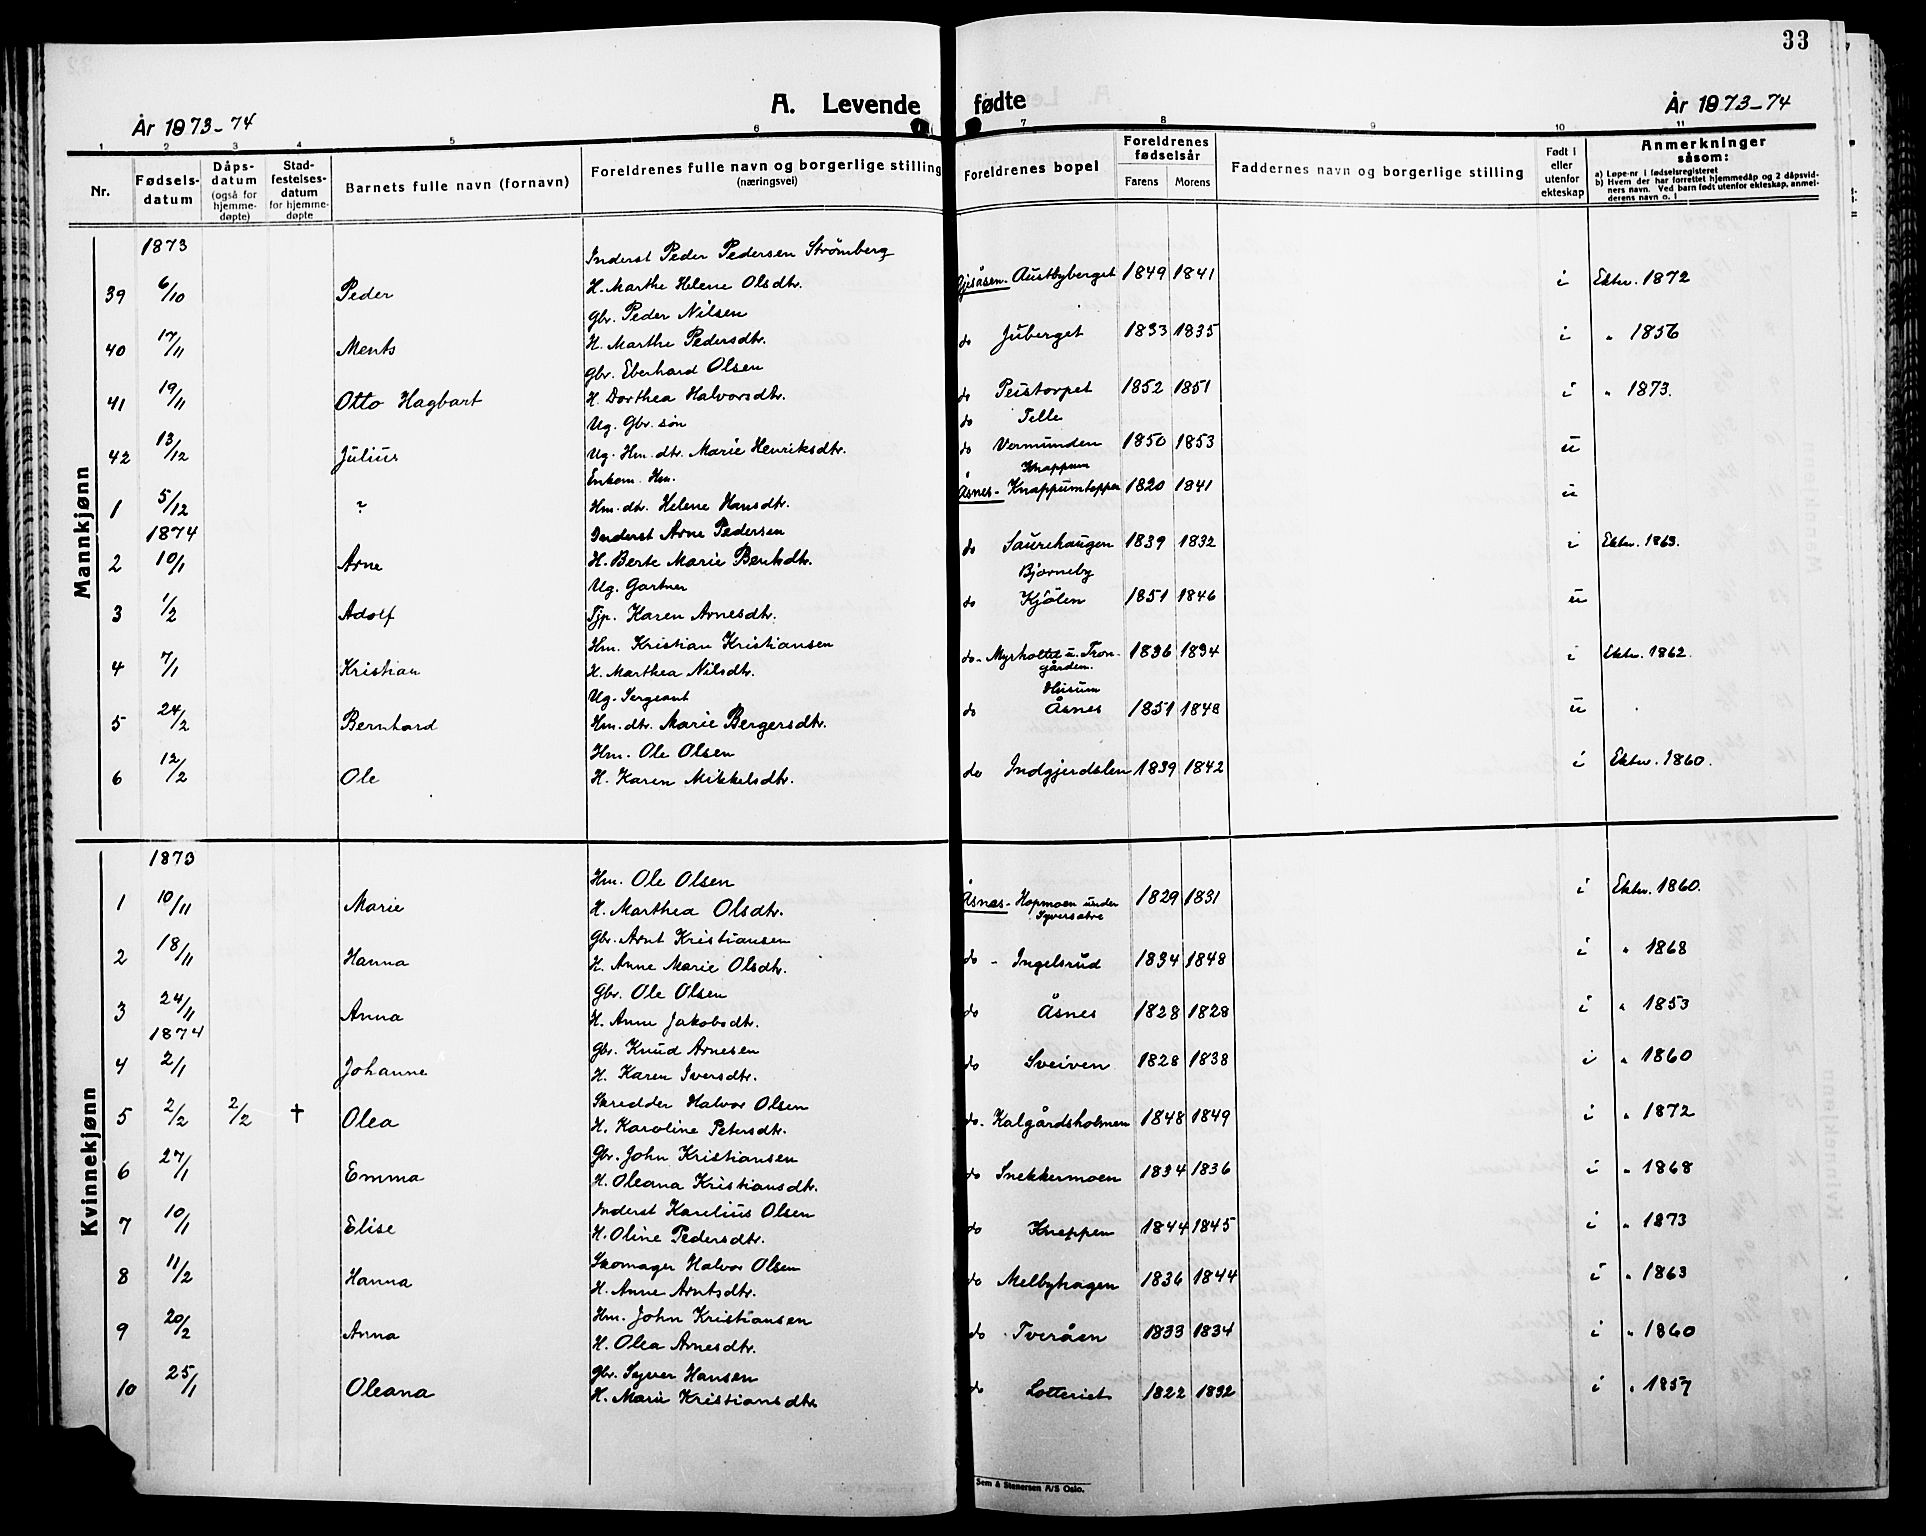 33
A. Levende fødte
År 1873-74
År 1873-74
1 2 3 4 5 6 7 8 9 10 11
Nr.
Fødsels-
datum
Dåps-
datum
(også for
hjemme-
døpte)
Stad-
festelses-
datum
for hjemme-
døpte
Barnets fulle navn (fornavn)
Foreldrenes fulle navn og borgerlige stilling
(næringsvei)
Foreldrenes bopel
Foreldrenes
fødselsår
Farens Morens
Faddernes navn og borgerlige stilling
Født i
eller
utenfor
ekteskap
Anmerkninger
såsom:
a) Løpe-nr i fødselsregisteret
b) Hvem der har forrettet hjemmedåp og 2 dåpsvid-
ners navn. Ved barn født utenfor ekteskap, anmel-
derens navn o. l
Mannkjønn
1873
Inderst Peder Pedersen Strømberg
39 6/10 Peder H. Marthe Helene Olsdtr. Gjesåsen- Austbyberget 1849 1841 i Ektev. 1872
Gbr. Peder Nilsen
40 17/11 Ments H. Marthe Pedersdtr. do Juberget 1833 1835 i " 1856
Gbr. Eberhard Olsen
41 19/11 Otto Hagbart H. Dorthea Halvorsdtr. do Peistorpet 1852 1851 i " 1873.
Ug. Gbr. søn do Telle
42 13/12 Julius Ug. Hm. dtr. Marie Henriksdtr. do Vermunden 1850 1853 u
Enkem. Hm. Knappum
1 5/12 ? Hm. dtr. Helene Hansdtr. Åsnes- Knappumtoppen 1820 1841 u
1874 Inderst Arne Pedersen
2 10/1 Arne H. Berte Marie Berntsdtr. do Saurehaugen 1839 1832 i Ektev. 1863.
Ug. Gartner Bjørneby
3 1/2 Adolf Tjp. Karen Arnesdtr. do Kjølen 1851 1846 u
Hm. Kristian Kristiansen
4 7/1 Kristian H. Marthea Nilsdtr. do- Myrholtet u. Tron-
gården. 1836 1834 i Ektev. 1862.
Ug. Sergeant Husum
5 24/2 Bernhard Hm. dtr. Marie Bergersdtr. do Åsnes 1851 1848 u
Hm. Ole Olsen
6 12/2 Ole H. Karen Mikkelsdtr. do Indgjerdslen 1839 1842 i Ektev. 1860.
Kvinnekjønn
1873
Hm. Ole Olsen
1 10/11 Marie H. Marthea Olsdtr. Åsnes- Hopmoen under
Syversætre 1829 1831 i Ektev. 1860.
Gbr. Arnt Kristiansen
2 18/11 Hanna H. Anne Marie Olsdtr. do - Ingelsrud 1834 1848 i " 1868
Gbr. Ole Olsen
3 24/11 Anna H. Anne Jakobsdtr. do Åsnes 1828 1828 i " 1853
1874
Gbr. Knud Arnesen
4 2/1 Johanne H. Karen Iversdtr. do Sveiven 1828 1838 i " 1860
Skredder Halvor Olsen
5 2/2 2/2 † Olea H. Karoline Petersdtr. do- Kalgårdsholmen 1848 1849 i " 1872
Gbr. John Kristiansen
6 27/1 Emma H. Oleana Kristiansdtr. do Snekkermoen 1834 1836 i " 1868
Inderst Karelius Olsen
7 10/1 Elise H. Oline Pedersdtr. do Kneppen 1844 1845 i " 1873
Skomager Halvor Olsen
8 11/2 Hanna H. Anne Arntsdtr. do Melbyhagen 1836 1844 i " 1863
Hm. John Kristiansen
9 20/2 Anna H. Olea Arnesdtr. do Tveråen 1833 1834 i " 1860
Gbr. Syver Hansen
10 25/1 Oleana H. Marie Kristiansdtr. do Lotteriet 1822 1832 i " 1857
Sem & Stenersen A/S Oslo.